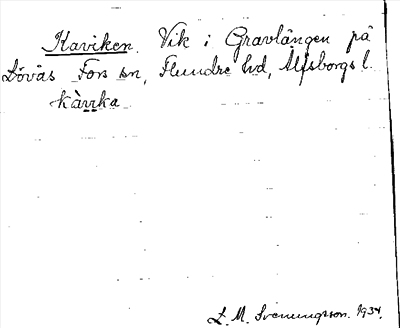 Kaviken. Vik i Gravlången på
Lövås Fors sn, Flundre hd, Älfsborgs l.
kàvka
L. M. Svenungsson. 1934.